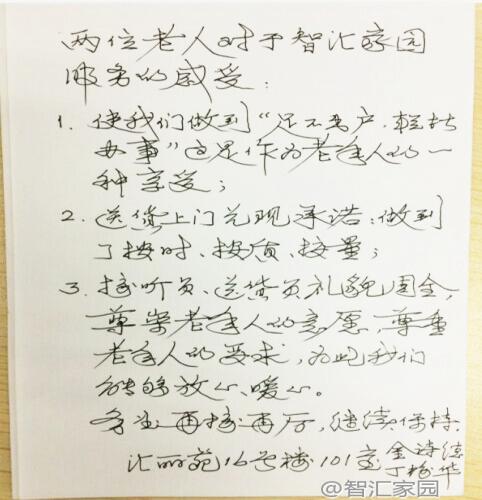 两位老人对于智汇家园
服务的感受：
1. 使我们做到“足不出户，轻松
办事”这是作为老年人的一
种享受；
2. 送货上门兑现承诺：做到
了按时、按质、按量；
3. 接听员、送货员礼貌周全，
尊崇老年人的意愿，尊重
老年人的要求，为此我们
能够放心、暖心。
务必再接再厉，继续保持.
汇丽苑16号楼101室 金诗德
丁梅华
@智汇家园